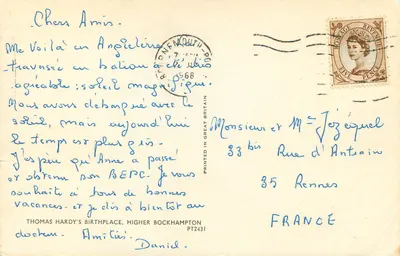 Chers Amis.
Me Voilà en Angleterre
traversée en bateau a été très
agréable: soleil magnifique.
Nous avons débarqué avec le
soleil, mais aujourd'hui
le temps est plus gris.
J'espère qu'Anne a passé
et obtenu son BEPC. Je vous
souhaite à tous de bonnes
vacances et je dis à bientôt au
docteur. Amitiés.
Daniel.
THOMAS HARDY'S BIRTHPLACE, HIGHER BOCKHAMPTON
PT2431
PRINTED IN GREAT BRITAIN
BOURNEMOUTH-POOLE
1968
Monsieur et Mme Jézéquel
33 bis Rue d'Antrain
35 Rennes
FRANCE